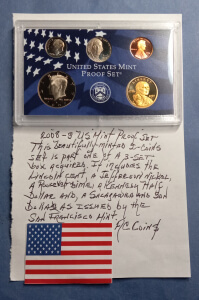 UNITED STATES MINT
PROOF SET
2008-S US Mint Proof Set
This beautifully minted 5-Coins
set is part one of a 3-set
Vox acquired. It includes the
Lincoln Cent, a Jefferson Nickel,
a Roosevelt Dime, a Kennedy Half
Dollar and, a Sacagawea and Son
Dollar as issued by the
San Francisco Mint.
KC Coins